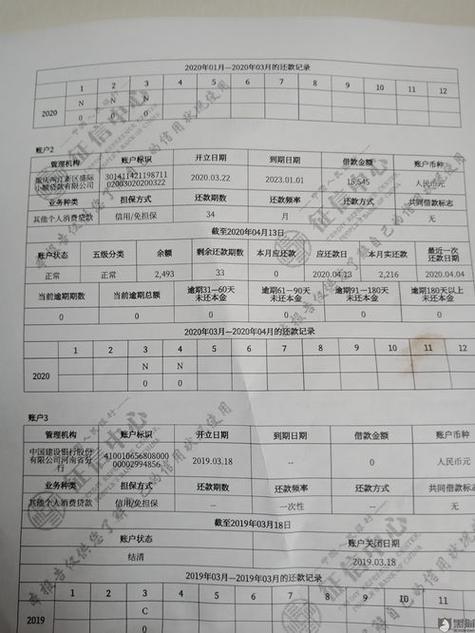 2020年01月—2020年03月的还款记录
1 2 3 4 5 6 7 8 9 10 11 12
2020 N N N
0 0 0
账户2
管理机构 账户标识 开立日期 到期日期 借款金额 账户币种
重庆两江新区盛际小额贷款有限公司 301411421198711 2020.03.22 2023.01.01 15,545 人民币元
02003020200322
业务种类 担保方式 还款期数 还款频率 还款方式 共同借款标志
其他个人消费贷款 信用/免担保 34 月 无
截至2020年04月13日
账户状态 五级分类 余额 剩余还款期数 本月应还款 应还款日 本月实还款 最近一次还款日期
正常 正常 2,493 33 0 2020.04.13 2,216 2020.04.04
当前逾期期数 当前逾期总额 逾期31—60天未还本金 逾期61—90天未还本金 逾期91—180天未还本金 逾期180天以上未还本金
0 0 0 0 0 0
2020年03月—2020年04月的还款记录
1 2 3 4 5 6 7 8 9 10 11 12
2020 N N
0 0
账户3
管理机构 账户标识 开立日期 到期日期 借款金额 账户币种
中国建设银行股份有限公司河南省分行 410010656808000 2019.03.18 -- 0 人民币元
00002994856
业务种类 担保方式 还款期数 还款频率 还款方式 共同借款标志
其他个人消费贷款 信用/免担保 -- 一次性 -- 无
截至2019年03月18日
账户状态 账户关闭日期
结清 2019.03.18
2019年03月—2019年03月的还款记录
1 2 3 4 5 6 7 8 9 10 11 12
2019 C
0
征信中心